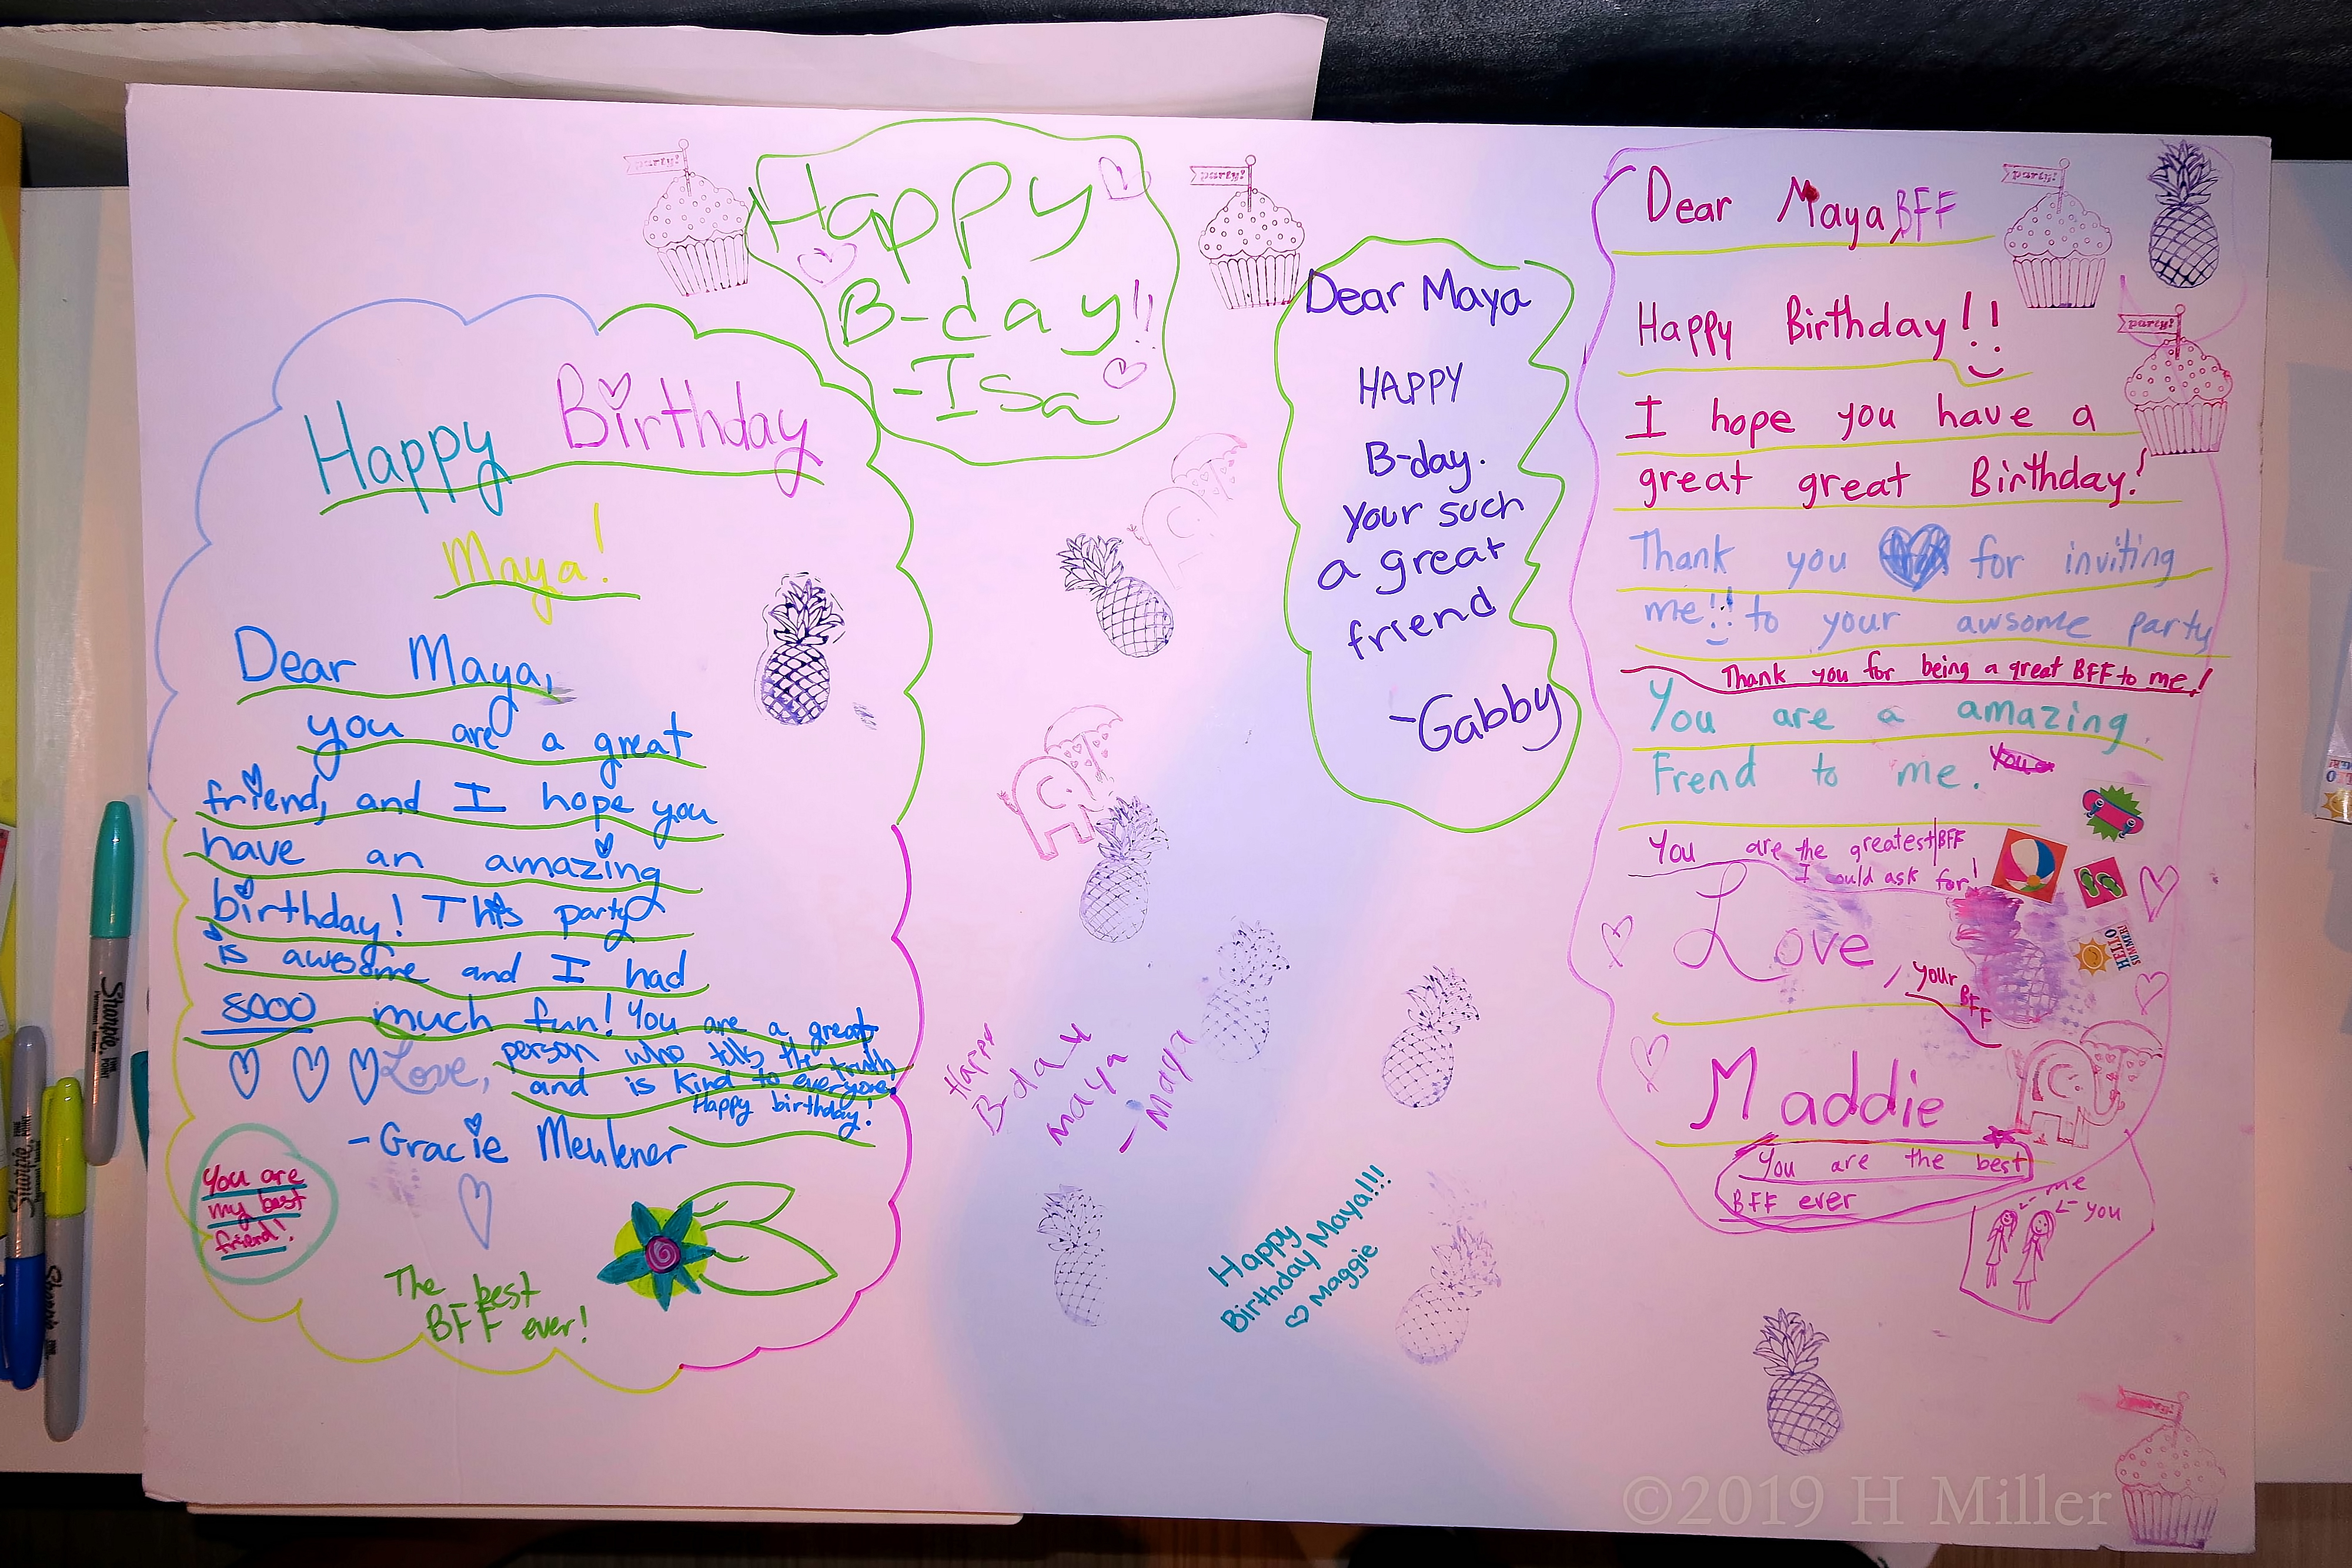 party!
Happy
B-day!!
-Isa
party!
Happy Birthday
Maya!
Dear Maya,
you are a great
friend, and I hope you
have an amazing
birthday! This party
is awesome and I had
sooo much fun! You are a great
person who tells the truth
and is kind to everyone.
Happy birthday!
Love,
-Gracie
You are
my best
friend!
The best
BFF ever!
Happy
B-day
maya
- Maya
Happy
Birthday Maya!!!
Maggie
Dear Maya
HAPPY
B-day.
your such
a great
friend
-Gabby
Dear Maya BFF
party!
Happy Birthday!!
party!
I hope you have a
great great Birthday!
Thank you for inviting
me!! to your awsome party
Thank you for being a great BFF to me!
You are a amazing
Frend to me. You
You are the greatest BFF
I could ask for!
Love, your
BFF
HELLO
SUMMER!
Maddie
You are the best
BFF ever
me
you
party!
Sharpie
Sharpie
Sharpie
©2019 H Miller